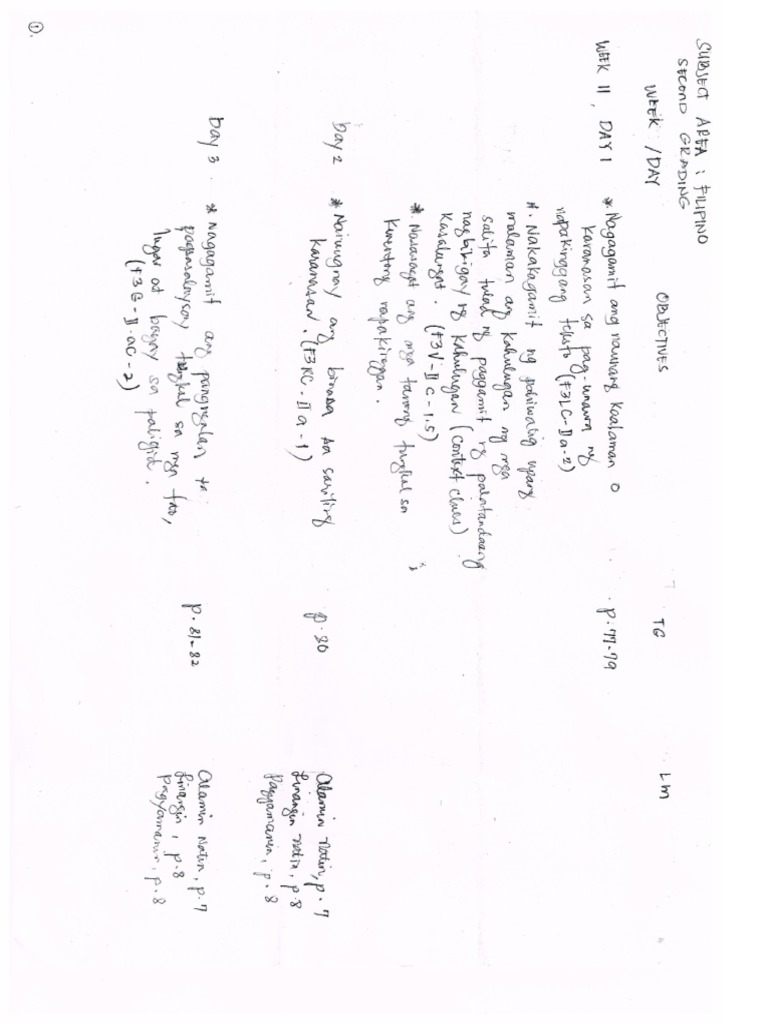 SUBJECT AREA : FILIPINO
SECOND GRADING
WEEK /DAY OBJECTIVES TG LM
WEEK 11, DAY 1 * Nagagamit ang naunang kaalaman o p. 77-79
karanasan sa pag-unawa ng
napakinggang teksto (F3LC-IIa-2)
*. Nakakagamit ng pahiwatig upang
malaman ang kahulugan ng mga
salita tulad ng paggamit ng palatandaang
nagbibigay ng kahulugan (context clues)
kasalungat. (F3V-IIc-1.5)
*. Nasasagot ang mga tanong tungkol sa
kuwentong napakinggan.
Day 2 * Naiuugnay ang binasa sa sariling p. 80 Alamin Natin, p. 7
karanasan. (F3RC-IIa-1) Linangin Natin, p. 8
Pagyamanin, p. 8
Day 3. * Nagagamit ang pangngalan sa p. 81-82 Alamin Natin, p. 7
pagsasalaysay tungkol sa mga tao, Linangin, p. 8
lugar at bagay sa paligid. Pagyamanin, p. 8
(F3G-II-ac-2)
①.